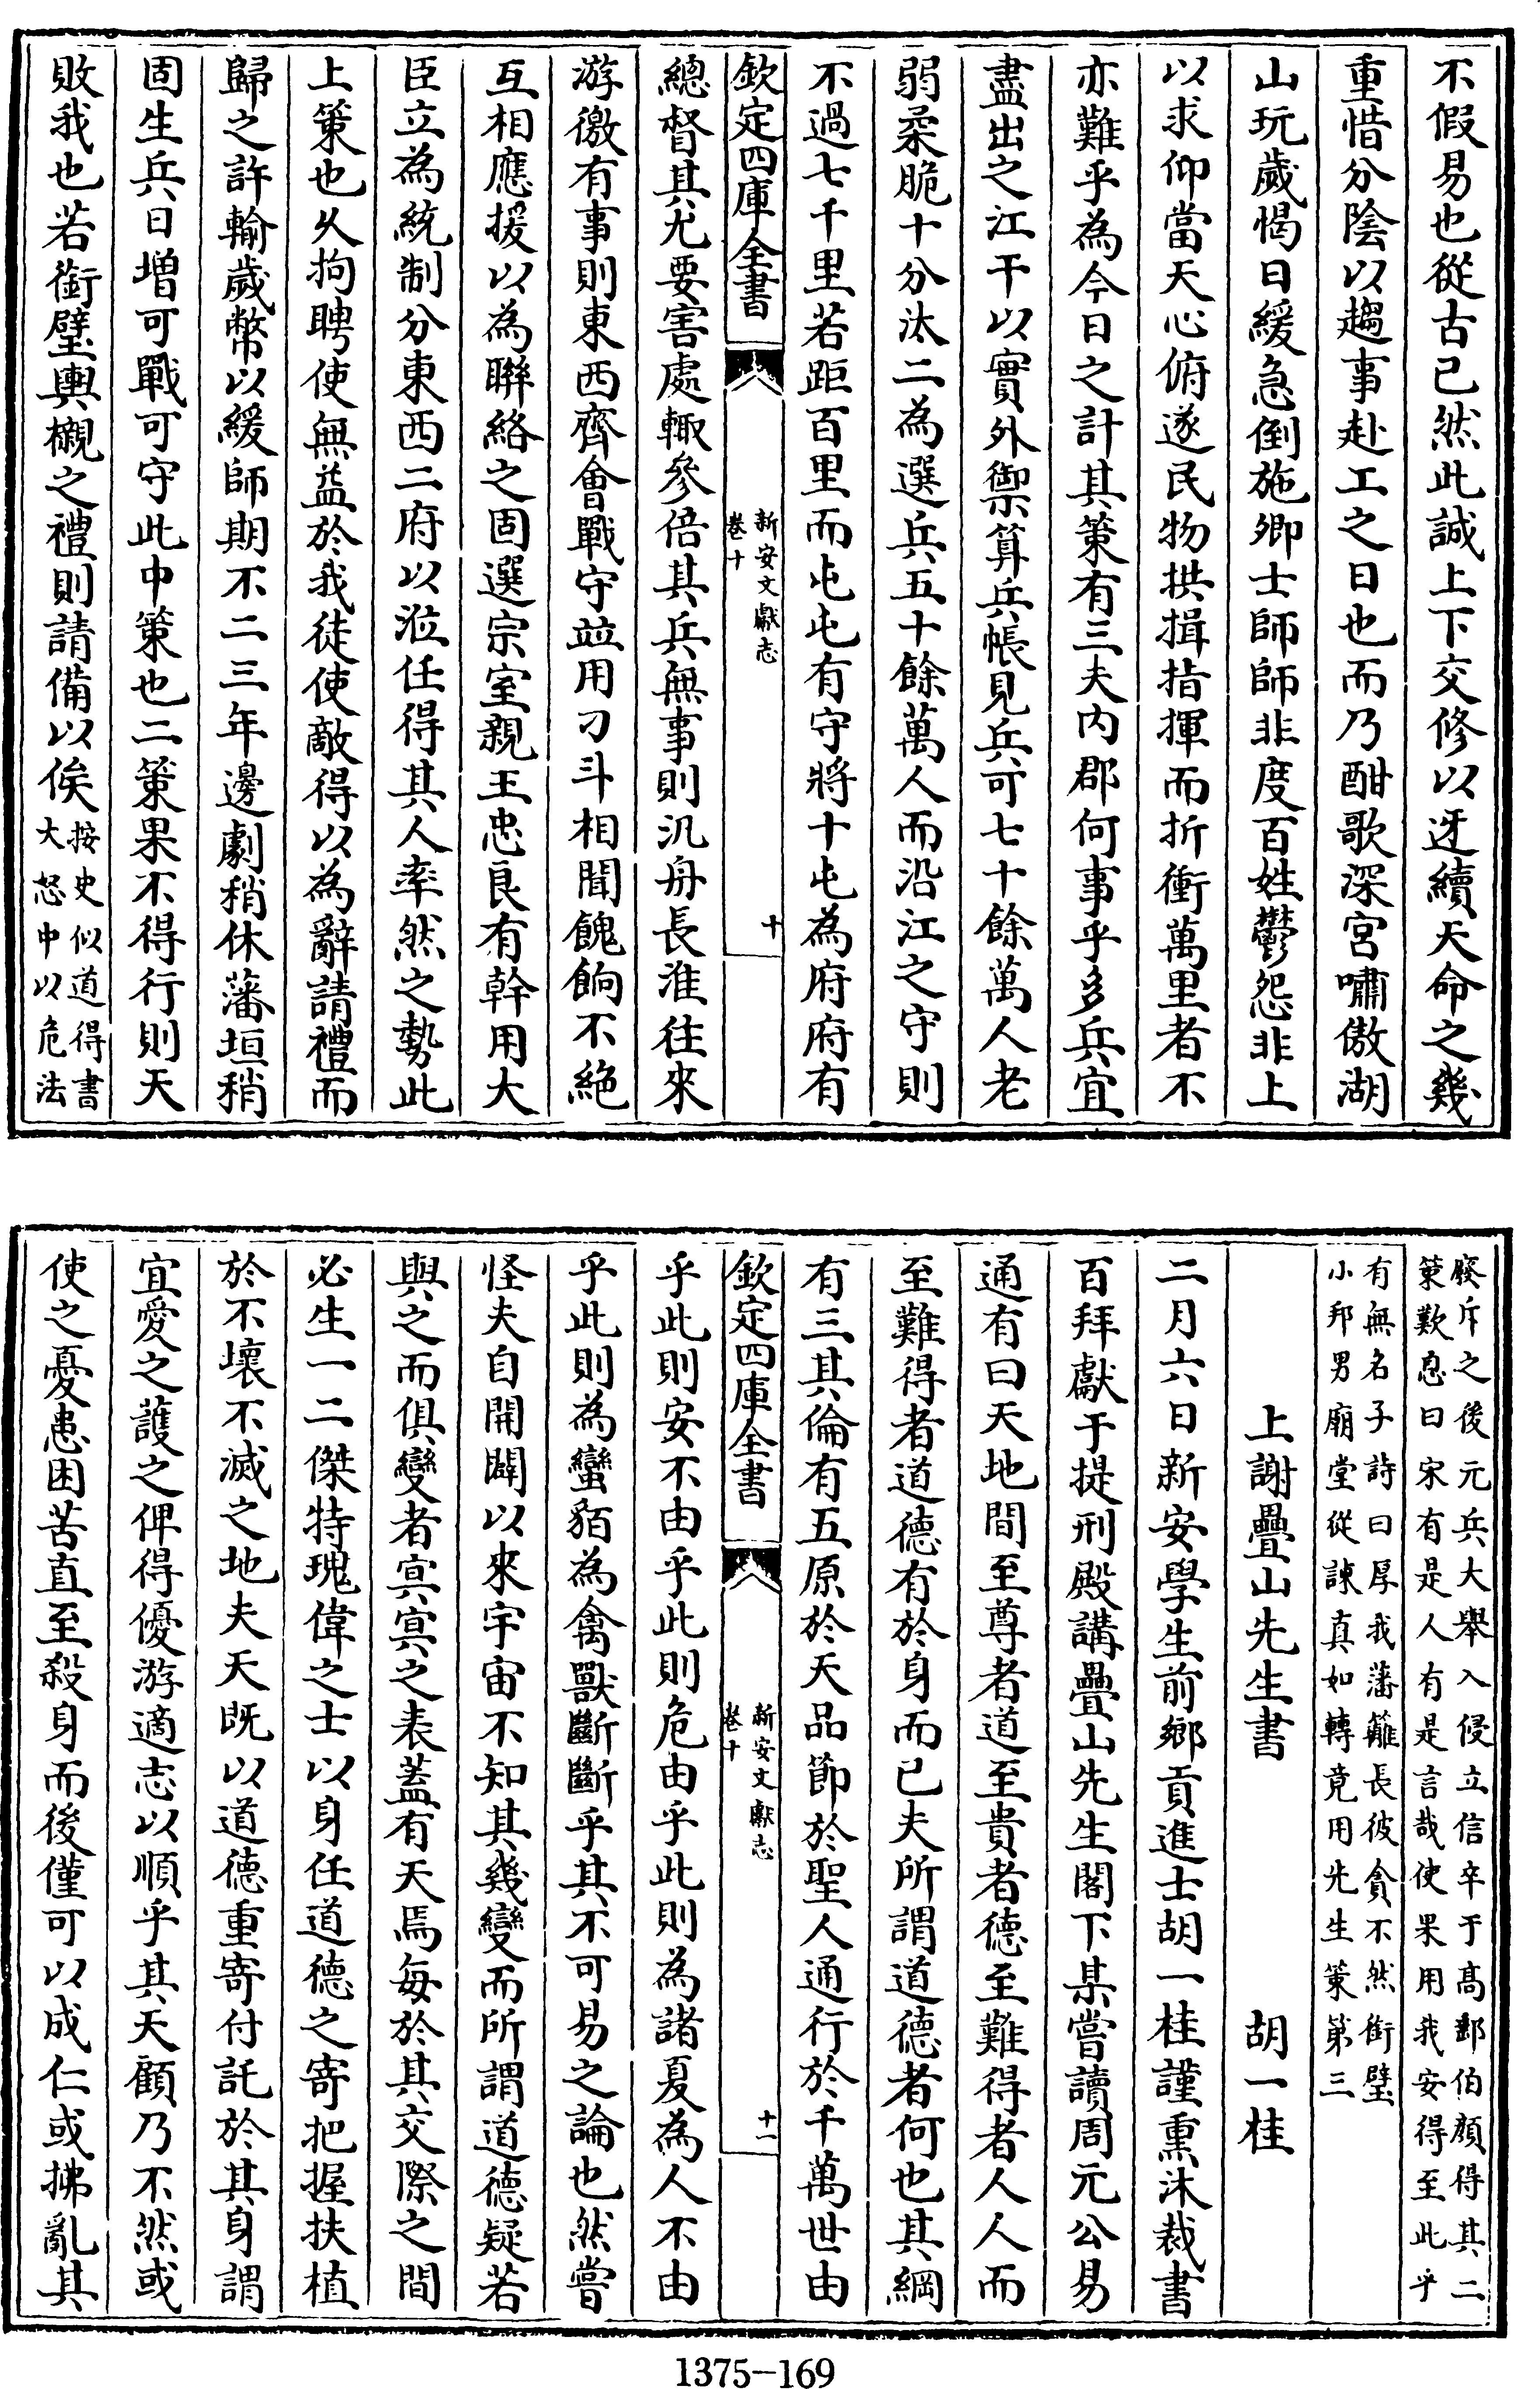 不假易也從古已然此誠上下交修以迓續天命之幾
重惜分陰以趨事赴工之日也而乃酣歌深宮嘯傲湖
山玩歲愒日緩急倒施卿士師師非度百姓鬱怨非上
以求仰當天心俯遂民物拱揖指揮而折衝萬里者不
亦難乎為今日之計其策有三夫內郡何事乎多兵宜
盡出之江干以實外禦算兵帳見兵可七十餘萬人老
弱柔脆十分汰二為選兵五十餘萬人而沿江之守則
不過七千里若距百里而屯屯有守將十屯為府府有
欽定四庫全書
新安文獻志
卷十
十
總督其尤要害處輙參倍其兵無事則汎舟長淮往來
游徼有事則東西齊會戰守竝用刁斗相聞餽餉不絶
互相應援以為聯絡之固選宗室親王忠良有幹用大
臣立為統制分東西二府以涖任得其人率然之勢此
上策也乆拘聘使無益於我徒使敵得以為辭請禮而
歸之許輸歲幣以緩師期不二三年邊劇稍休藩垣稍
固生兵日增可戰可守此中策也二策果不得行則天
敗我也若銜璧輿櫬之禮則請備以俟
按史似道得書
大怒中以危法
廢斥之後元兵大舉入侵立信卒于髙郵伯顔得其二
策歎息曰宋有是人有是言哉使果用我安得至此乎
有無名子詩曰厚我藩籬長彼貪不然銜璧
小邦男廟堂從諫真如轉竟用先生策第三
上謝疊山先生書 胡一桂
二月六日新安學生前鄉貢進士胡一桂謹熏沐裁書
百拜獻于提刑殿講疊山先生閣下某嘗讀周元公易
通有曰天地間至尊者道至貴者德至難得者人人而
至難得者道德有於身而已夫所謂道德者何也其綱
有三其倫有五原於天品節於聖人通行於千萬世由
欽定四庫全書
新安文獻志
卷十
十一
乎此則安不由乎此則危由乎此則為諸夏為人不由
乎此則為蠻貊為禽獸斷斷乎其不可易之論也然嘗
怪夫自開闢以來宇宙不知其幾變而所謂道德疑若
與之而俱變者㝠㝠之表蓋有天焉每於其交際之間
必生一二傑特瑰偉之士以身任道德之寄把握扶植
於不壞不滅之地夫天既以道德重寄付託於其身謂
宜愛之護之俾得優游適志以順乎其天顧乃不然或
使之憂患困苦直至殺身而後僅可以成仁或拂亂其
1375-169